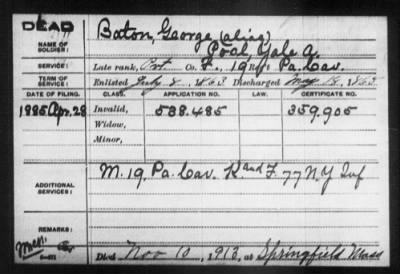 DEAD
NAME OF SOLDIER:
Baton, George (alias)
Poal, Gale A.
SERVICE:
Late rank, Pvt. Co. F, 19 Reg't Pa. Cav.
TERM OF SERVICE:
Enlisted July 8, 1863 Discharged May 13, 1865
DATE OF FILING. CLASS. APPLICATION NO. LAW. CERTIFICATE NO.
1885 Apr. 28 Invalid, 538.485 359.905
Widow,
Minor,
ADDITIONAL SERVICES:
M. 19 Pa. Cav. K and F. 77 N.Y Inf
REMARKS:
Died Nov 10, 1913, at Springfield Mass